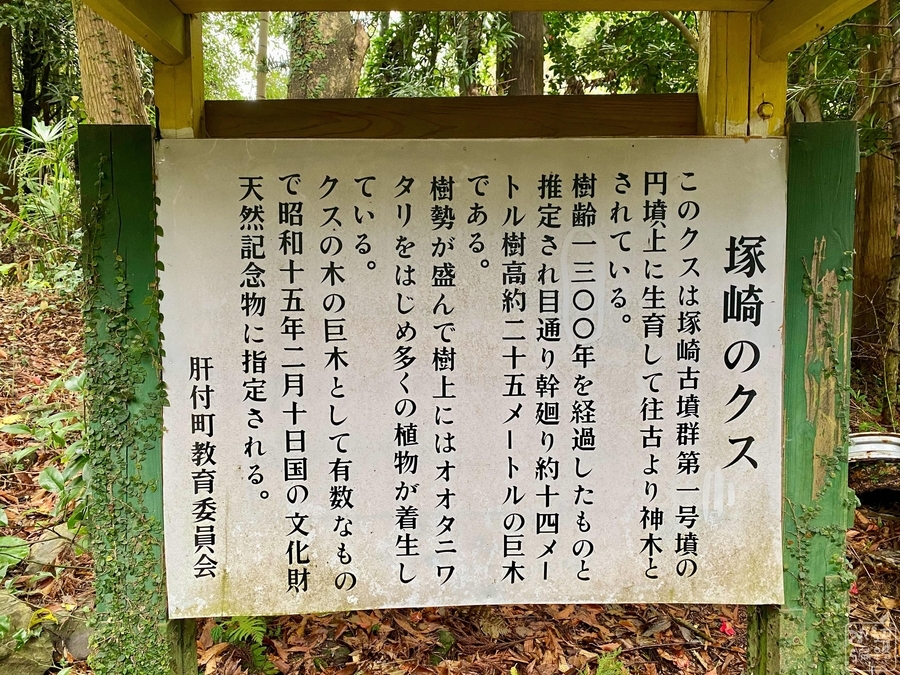 塚崎のクス
このクスは塚崎古墳群第一号墳の
円墳上に生育して往古より神木と
されている。
樹齢一三〇〇年を経過したものと
推定され目通り幹廻り約十四メー
トル樹高約二十五メートルの巨木
である。
樹勢が盛んで樹上にはオオタニワ
タリをはじめ多くの植物が着生し
ている。
クスの木の巨木として有数なもの
で昭和十五年二月十日国の文化財
天然記念物に指定される。
肝付町教育委員会